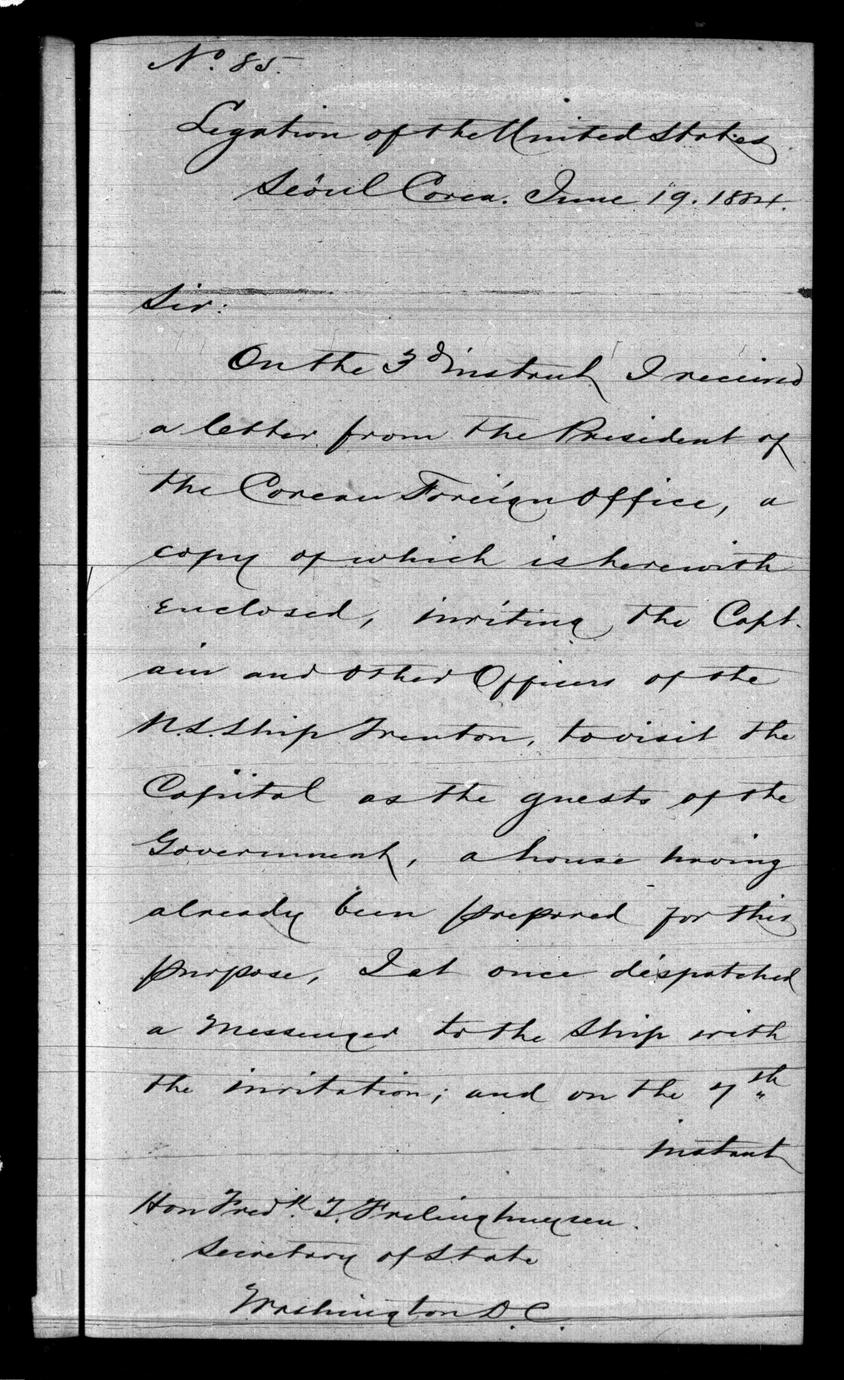 No. 85.
Legation of the United States
Seóul Corea. June 19. 1884.
Sir:
On the 3d instant, I received
a letter from the President of
the Corean Foreign Office, a
copy of which is herewith
enclosed, inviting the Capt-
ain and other Officers of the
U.S. Ship Trenton, to visit the
Capital as the guests of the
Government, a house having
already been prepared for this
purpose, I at once dispatched
a messenger to the Ship with
the invitation; and on the 7th
instant
Hon Fredk. T. Frelinghuysen.
Secretary of State
Washington D.C.